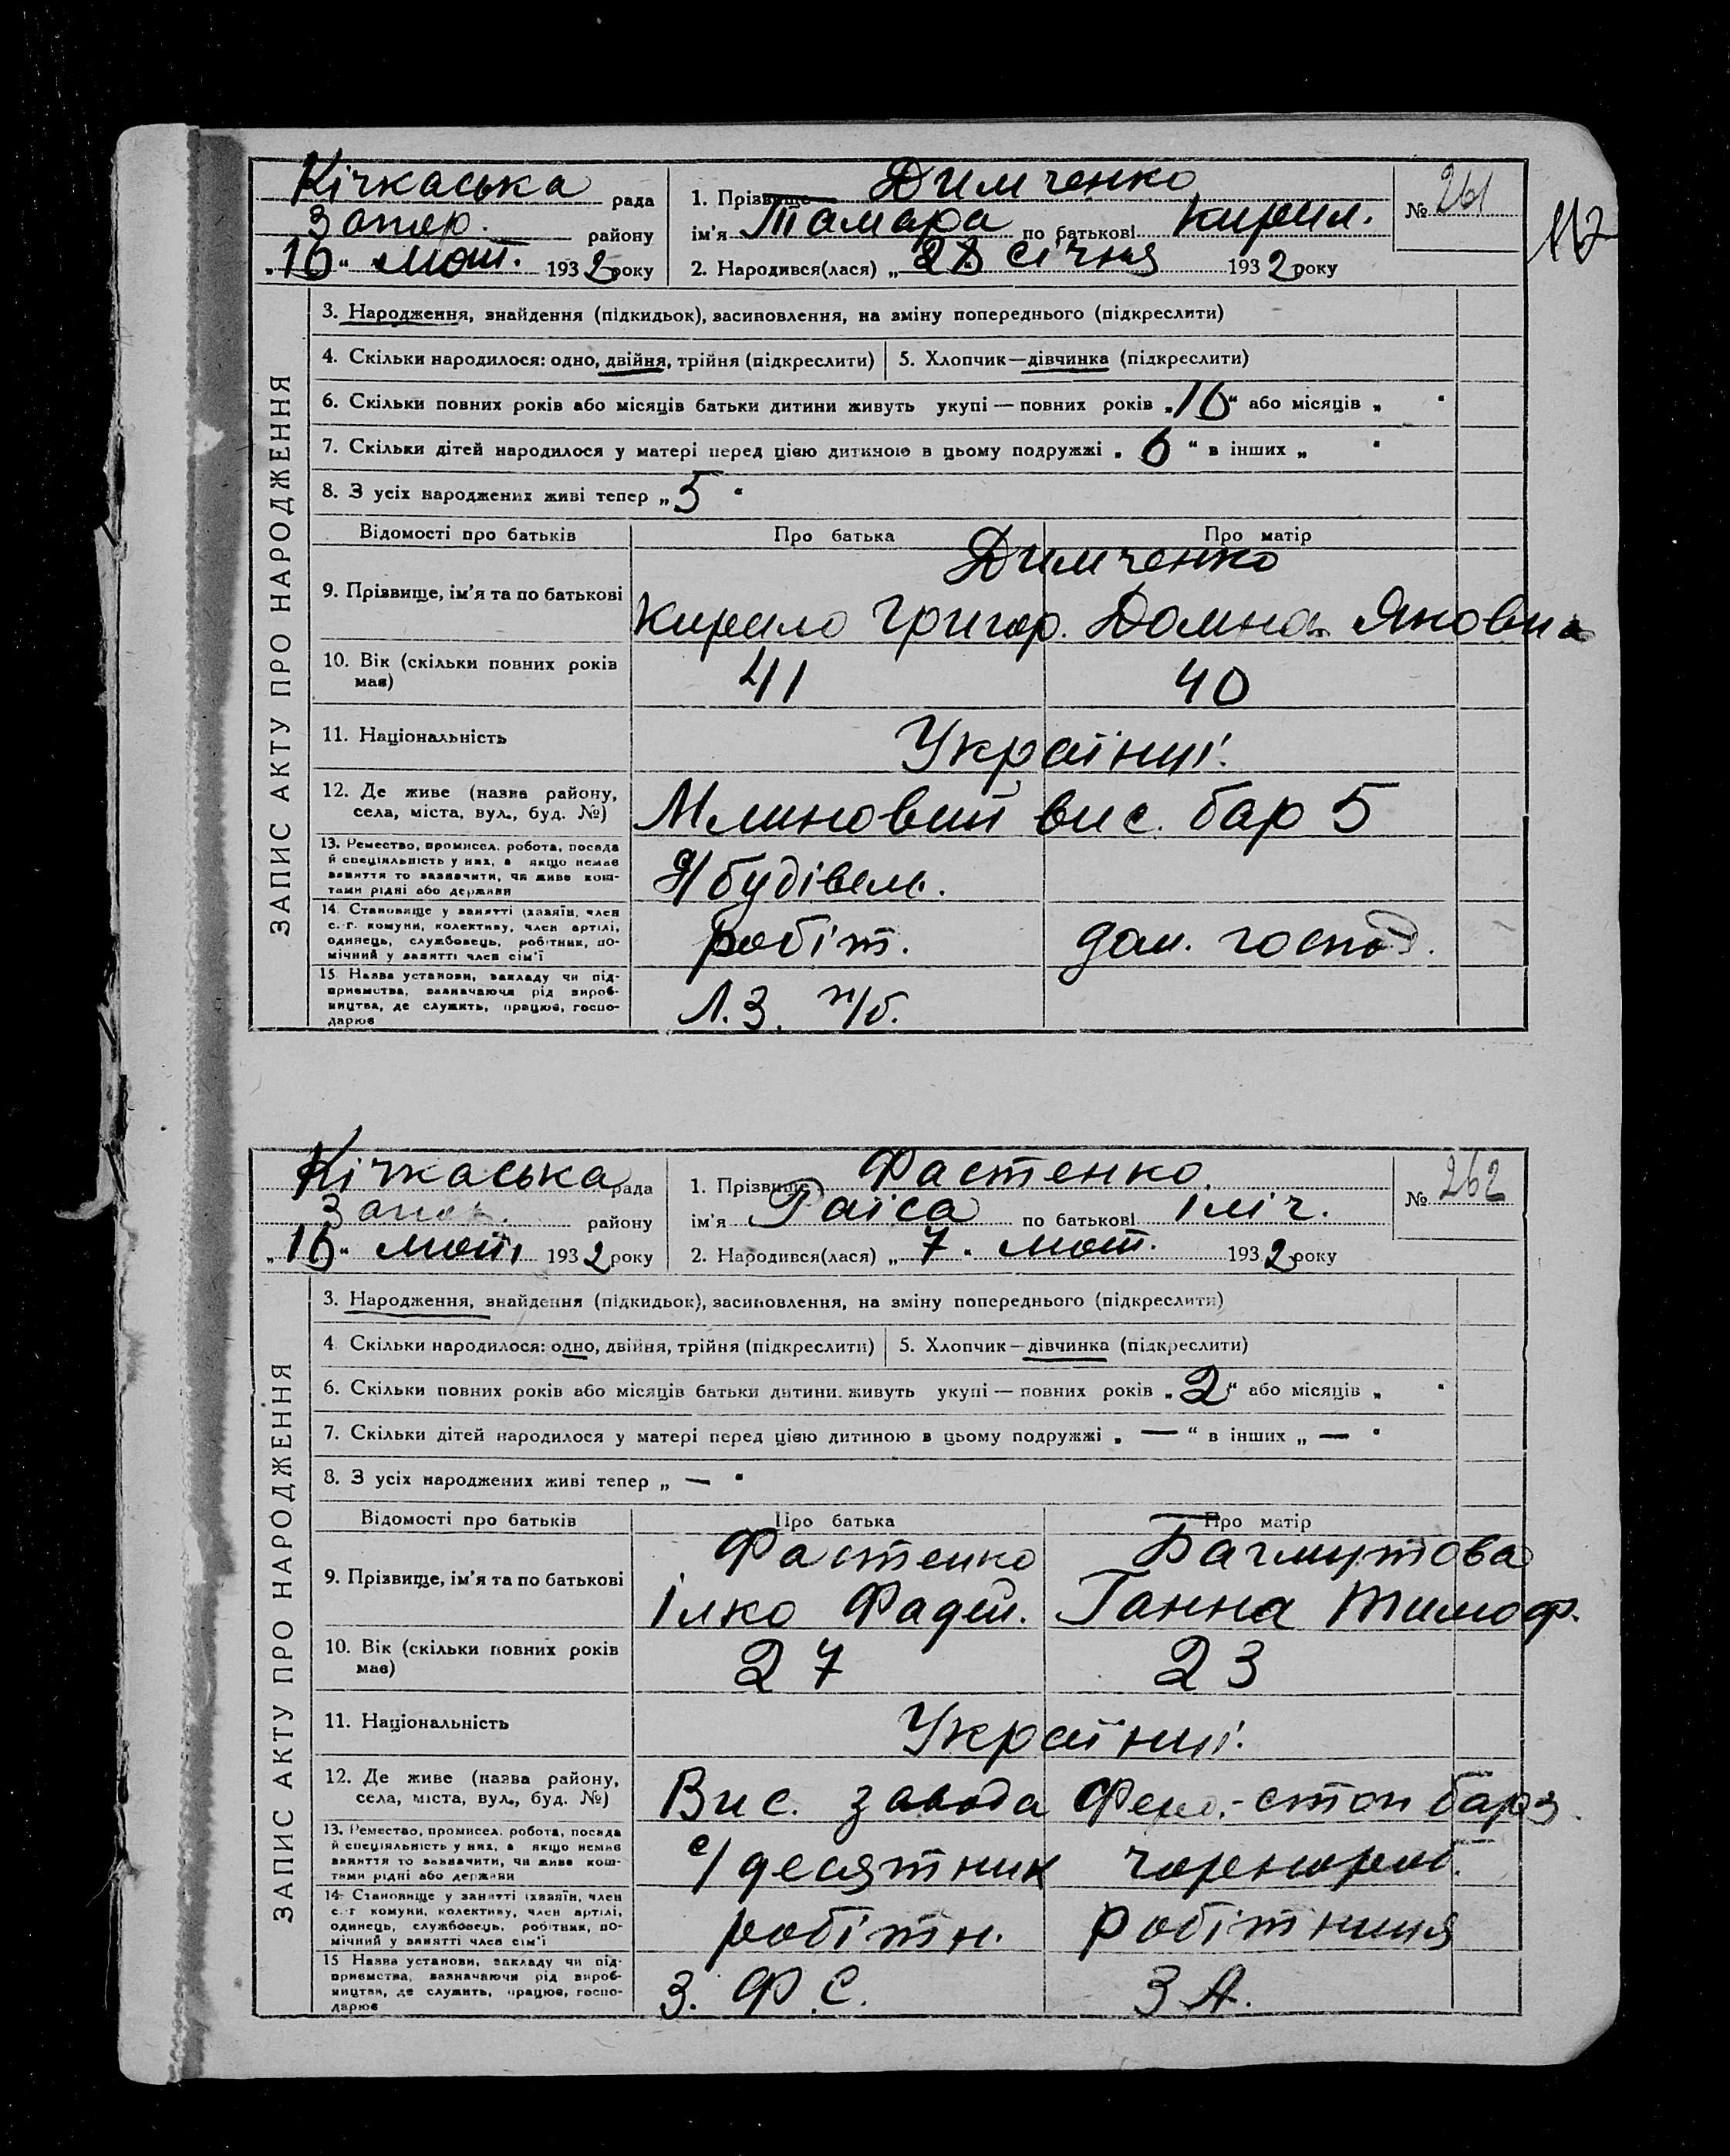 Кічкаська рада
Запор. району
„16“ лют. 1932 року
1. Прізвище Димченко
ім'я Тамара по батькові Кирил.
2. Народився(лася) „ січня 1932 року
№ 261
117
ЗАПИС АКТУ ПРО НАРОДЖЕННЯ
3. Народження, знайдення (підкидьок), засиновлення, на зміну попереднього (підкреслити)
4. Скільки народилося: одно, двійня, трійня (підкреслити)
5. Хлопчик—дівчинка (підкреслити)
6. Скільки повних років або місяців батьки дитини живуть укупі — повних років „16“ або місяців „ “
7. Скільки дітей народилося у матері перед цією дитиною в цьому подружжі „6“ в інших „ “
8. З усіх народжених живі тепер „5“
Відомості про батьків
Про батька
Про матір
9. Прізвище, ім'я та по батькові
Димченко
Кирило Григор.
Домна Яковна
10. Вік (скільки повних років має)
41
40
11. Національність
Українці.
12. Де живе (назва району, села, міста, вул., буд. №)
Млиновий вис. бар 5
13. Ремество, промисел, робота, посада й спеціяльність у них, а якщо немає заняття то зазначити, чи живе коштами рідні або держави
будівель.
14. Становище у занятті (хазяїн, член с.-г. комуни, колективу, член артілі, одинець, службовець, робітник, помічний у занятті член сім'ї
робіт.
дом. господ.
15. Назва установи, закладу чи підприємства, зазначаючи рід виробництва, де служить, працює, господарює
Л.З. п/б.
Кічкаська рада
Запор. району
„16“ лют. 1932 року
1. Прізвище Фастенко.
ім'я Раїса по батькові Ілліч.
2. Народився(лася) „7“ лют. 1932 року
№ 262
ЗАПИС АКТУ ПРО НАРОДЖЕННЯ
3. Народження, знайдення (підкидьок), засиновлення, на зміну попереднього (підкреслити)
4. Скільки народилося: одно, двійня, трійня (підкреслити)
5. Хлопчик—дівчинка (підкреслити)
6. Скільки повних років або місяців батьки дитини живуть укупі — повних років „2“ або місяців „ “
7. Скільки дітей народилося у матері перед цією дитиною в цьому подружжі „—“ в інших „—“
8. З усіх народжених живі тепер „—“
Відомості про батьків
Про батька
Про матір
9. Прізвище, ім'я та по батькові
Фастенко
Багмутова
Ілко Фадей.
Ганна Тимоф.
10. Вік (скільки повних років має)
27
23
11. Національність
Українці.
12. Де живе (назва району, села, міста, вул., буд. №)
Вис. завода Феро.-стоп бар
13. Ремество, промисел, робота, посада й спеціяльність у них, а якщо немає заняття то зазначити, чи живе коштами рідні або держави
с/десятник
чорнороб.
14. Становище у занятті (хазяїн, член с.-г. комуни, колективу, член артілі, одинець, службовець, робітник, помічний у занятті член сім'ї
робітн.
робітниця
15. Назва установи, закладу чи підприємства, зазначаючи рід виробництва, де служить, працює, господарює
З. Ф.С.
З А.